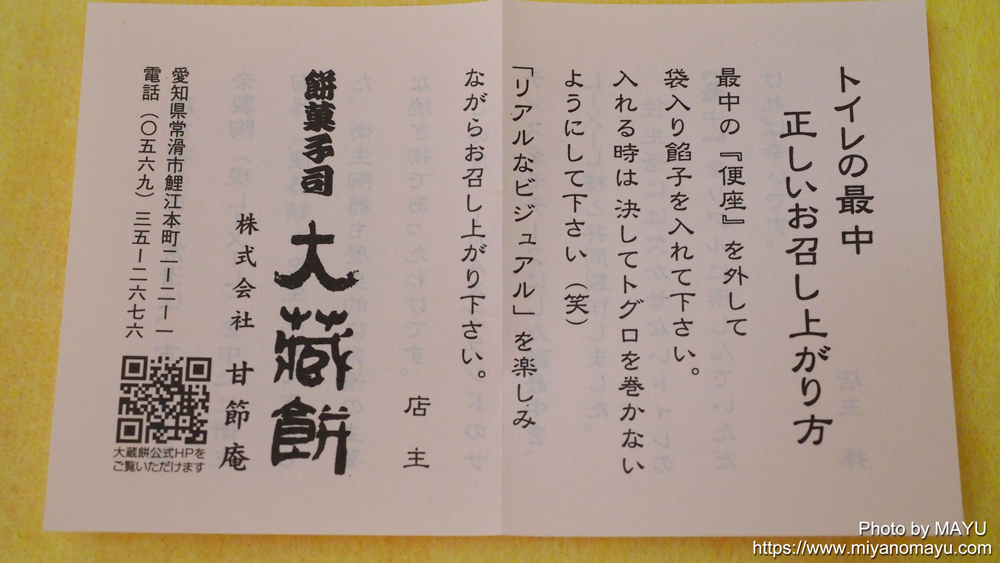 トイレの最中
正しいお召し上がり方
最中の『便座』を外して
袋入り餡子を入れて下さい。
入れる時は決してトグロを巻かない
ようにして下さい(笑)
「リアルなビジュアル」を楽しみ
ながらお召し上がり下さい。
店主
餅菓子司 大蔵餅
株式会社 甘節庵
愛知県常滑市鯉江本町二-二-一
電話(〇五六九)三五-二六七六
大蔵餅公式HPを
ご覧いただけます
Photo by MAYU
https://www.miyanomayu.com